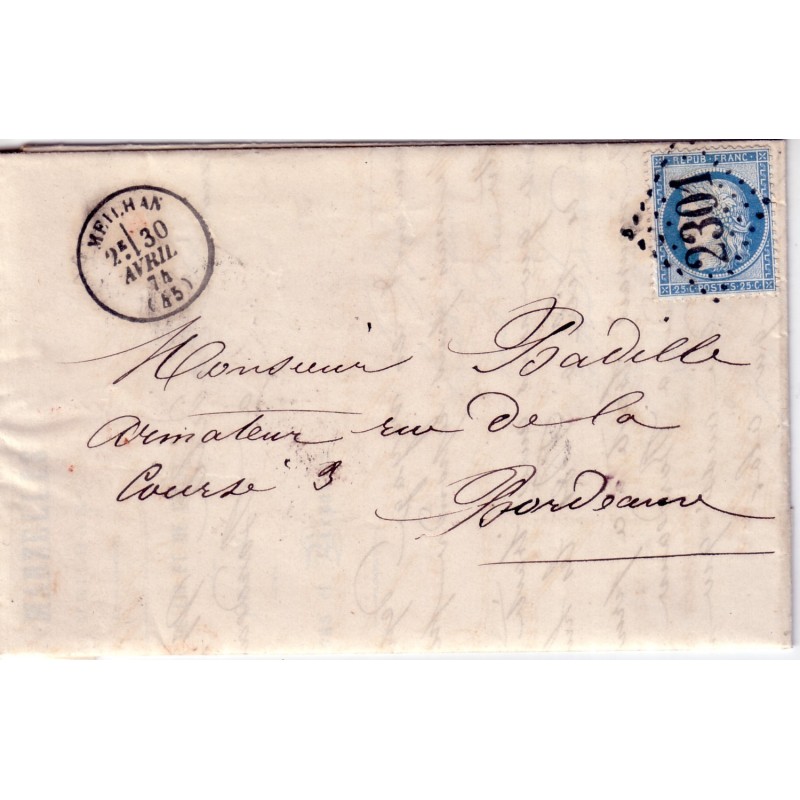 MEILHAN
2E 30
AVRIL
74
(45)
REPUB. FRANC.
2301
25.C. POSTES. 25.C
Monsieur Badille
armateur rue de la
Course 3
Bordeaux